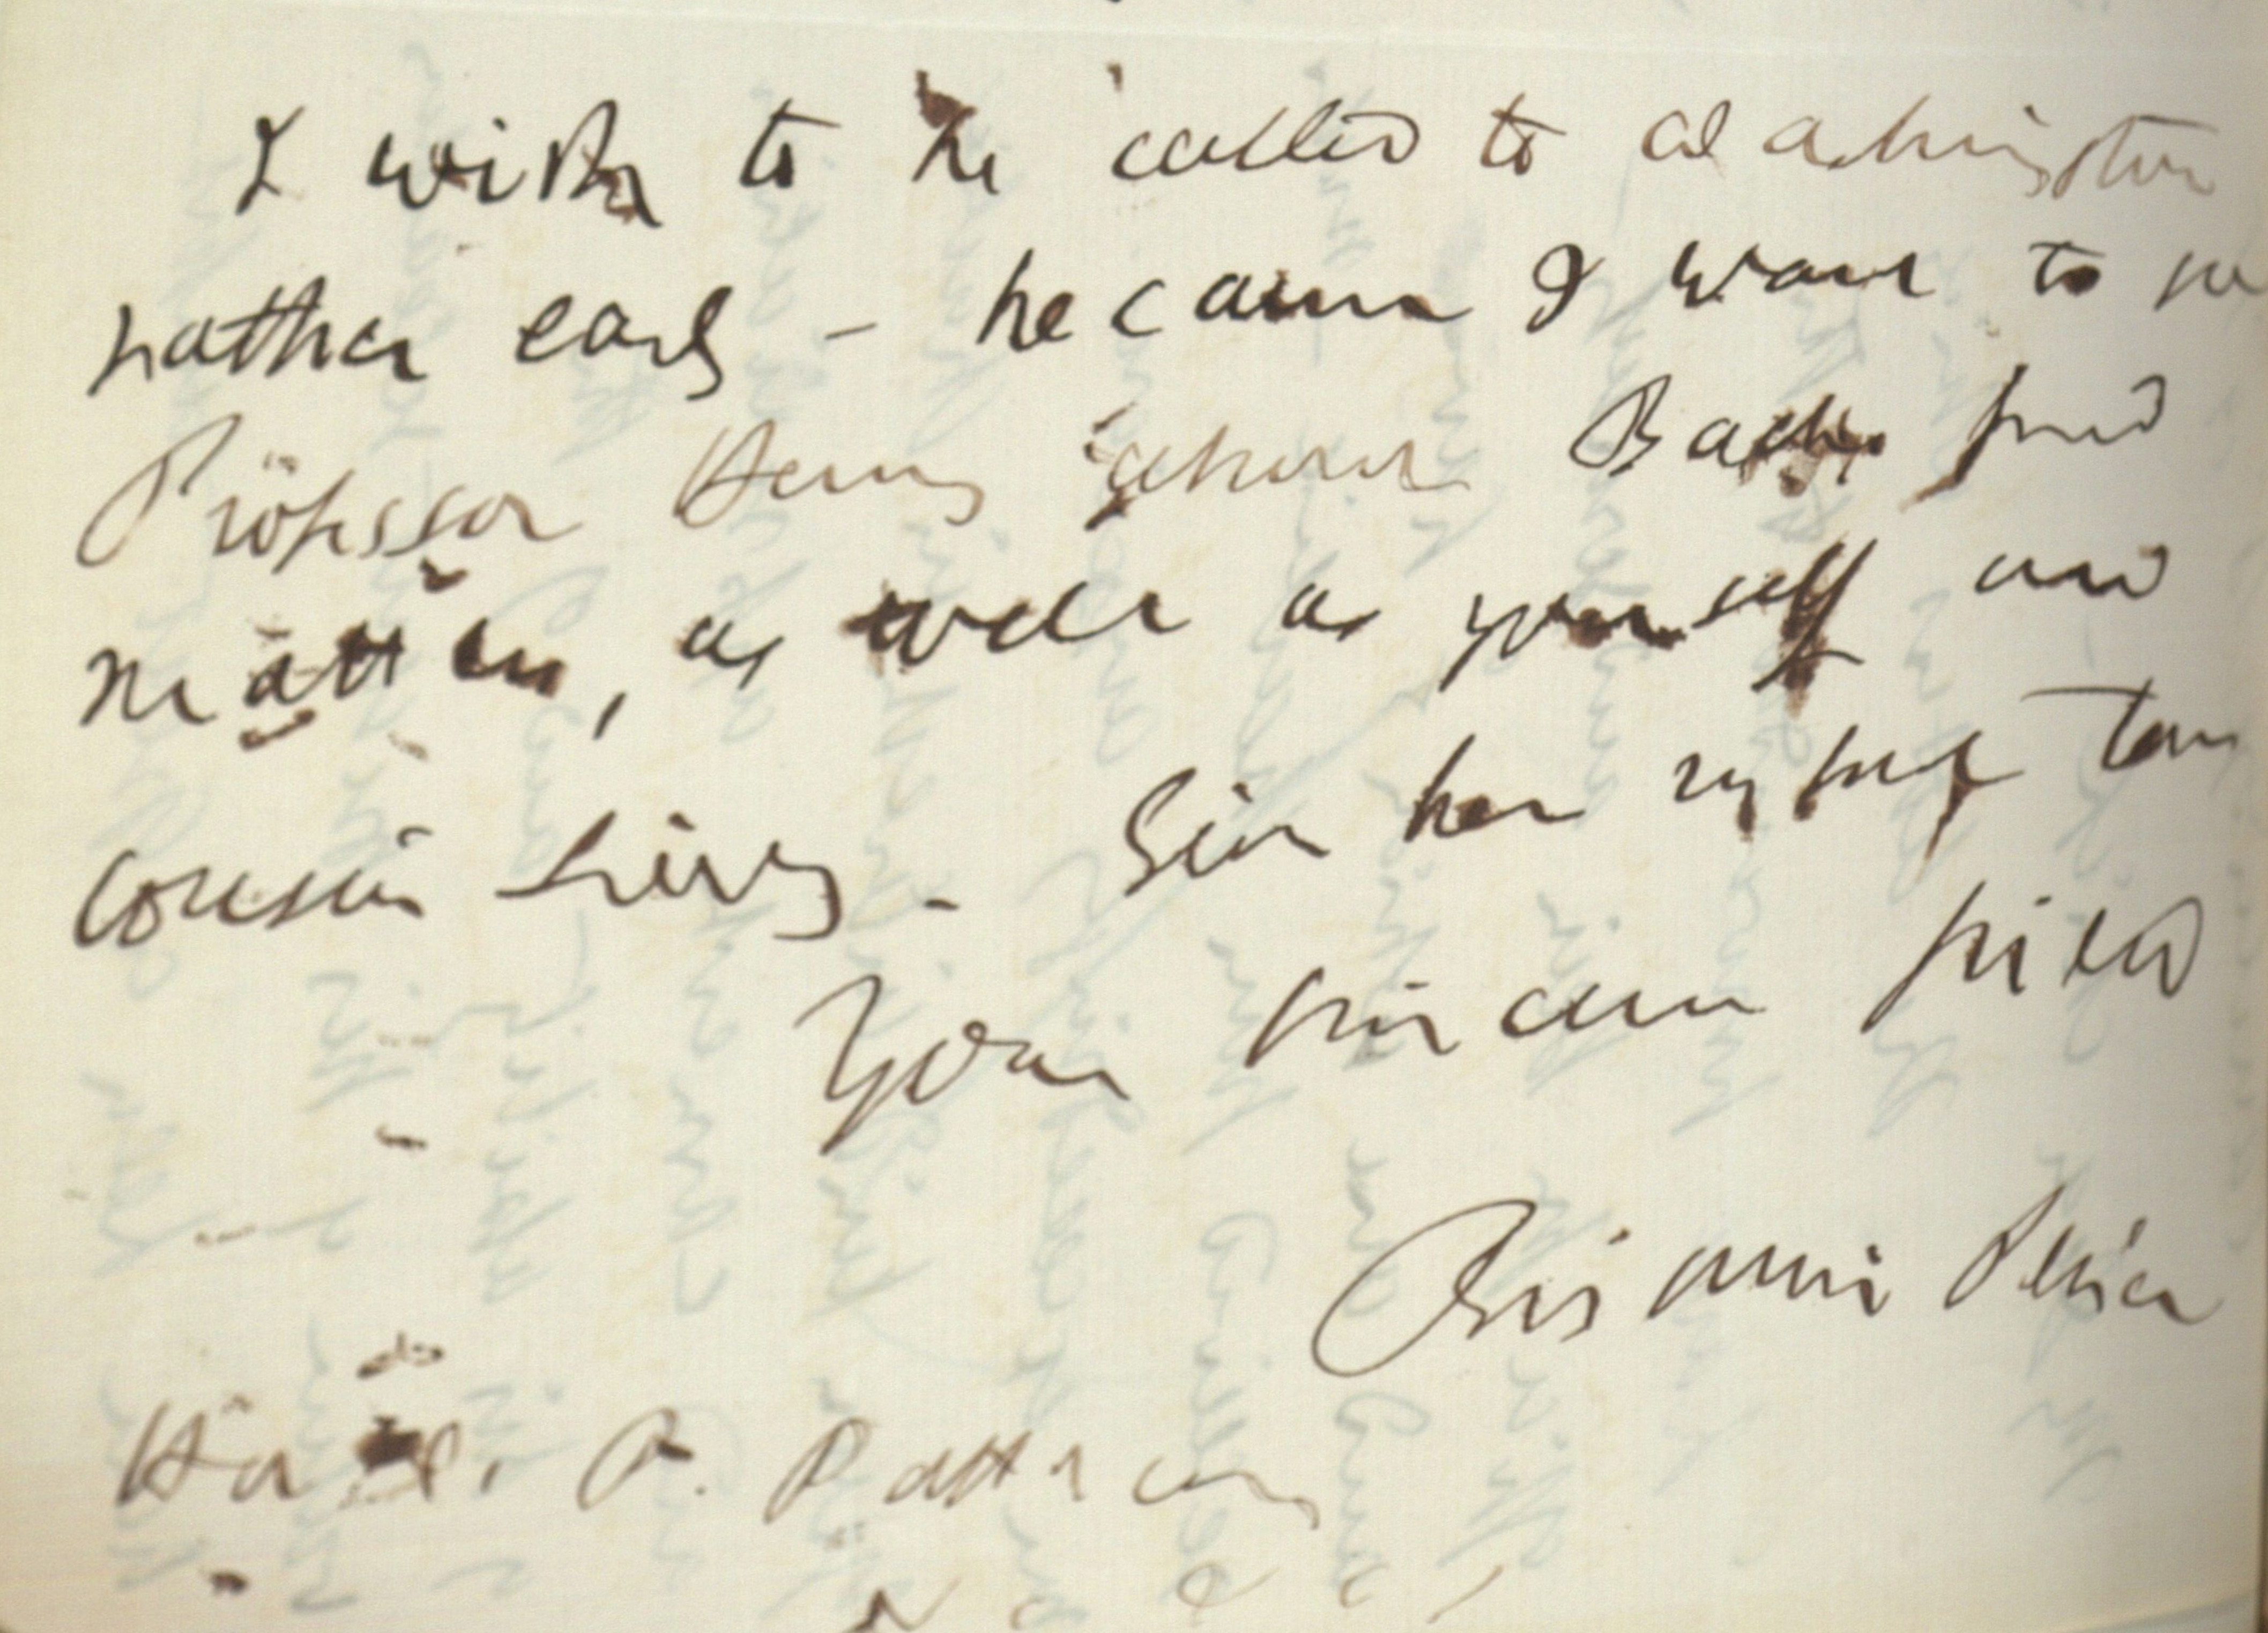 I wish to be called to Washington
rather early - because I want to see
Professor Henry about Bache fund
matters, as well as yourself and
cousin Lizzy - Give her my best
Your sincere friend
Benjamin Peirce
C. P. Patterson